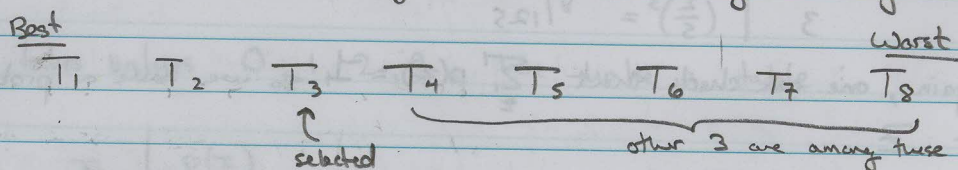 Best
Worst
T1 T2 T3 T4 T5 T6 T7 T8
selected
other 3 are among these